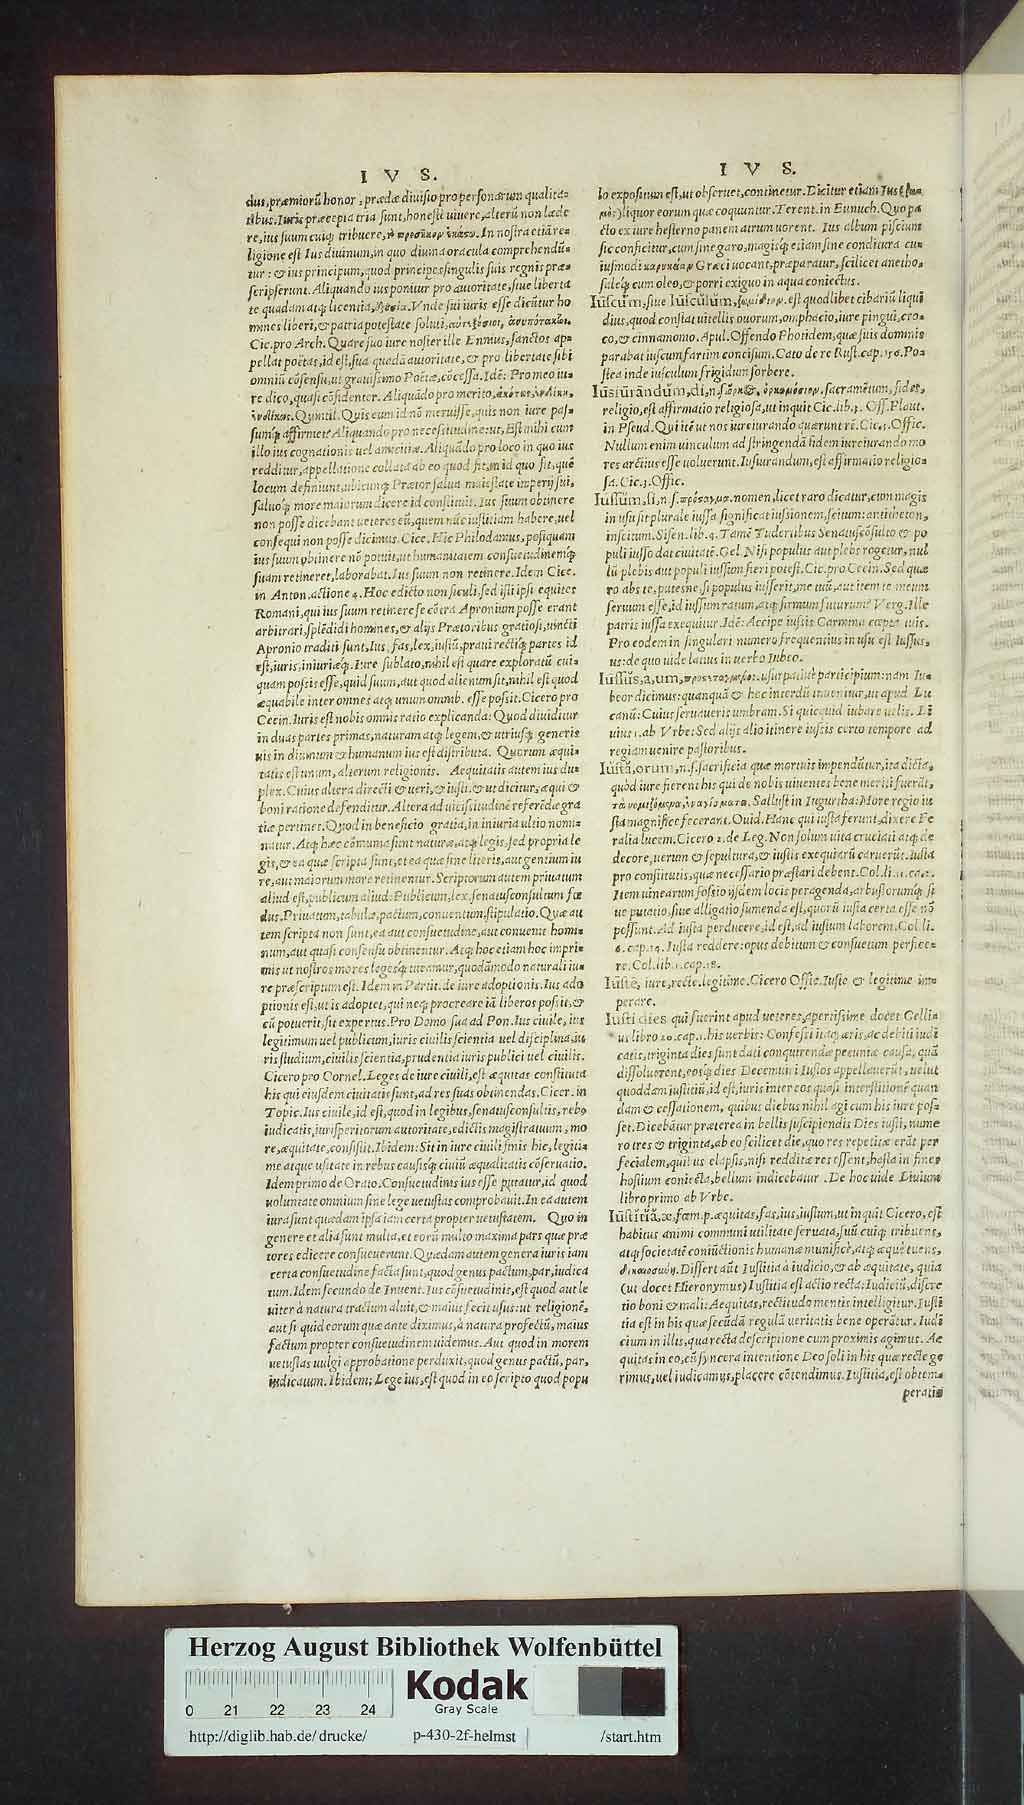 I V S.
dus, præmiorũ honor, prædæ diuisio pro personarum qualita-
tibus. Iuris præcepta tria sunt, honestè uiuere, alterũ non læde
re, ius suum cuiq; tribuere, In nostra etiã re-
ligione est Ius diuinum, in quo diuina oracula comprehendũ-
tur: & ius principum, quod principes singulis suis regnis præ-
scripserunt. Aliquando ius ponitur pro autoritate, siue liberta
te quadam atq; licentia, Vnde sui iuris esse dicũtur ho
mines liberi, & patria potestate soluti,
Cic. pro Arch. Quare suo iure noster ille Ennius, sanctos ap-
pellat poëtas, id est, sua quadã autoritate, & pro libertate sibi
omniũ cõsensu, ut grauissimo Poëtæ, cõcessa. Idẽ: Pro meo iu-
re dico, quasi cõfidenter. Aliquãdo pro merito,
Quintil. Quis eum id nõ meruisse, quis non iure pas-
sumq; affirmet? Aliquando pro necessitudine: ut, Est mihi cum
illo ius cognationis uel amicitiæ. Aliquãdo pro loco in quo ius
redditur, appellatione collata ab eo quod fit, in id quo fit, quẽ
locum definiunt, ubicunq; Prætor salua maiestate imperij sui,
saluoq; more maiorum dicere id constituit. Ius suum obtinere
non posse dicebant ueteres eũ, quem nũc iustitiam habere, uel
consequi non posse dicimus. Cice. Hic Philodamus, posiquam
ius suum obtinere nõ potuit, ut humanitatem consuetudinemq;
suam retineret, laborabat. Ius suum non retinere. Idem Cice.
in Anton. actione 4. Hoc edicto non siculi, sed isti ipsi equites
Romani, qui ius suum retinere se cõtra Apronium posse erant
arbitrati, splẽdidi homines, & alijs Prætoribus gratiosi, uincti
Apronio traditi sunt, Ius, fas, lex, iustũ, praui rectiq; partes id
est, iuris, iniuriæq;. Iure sublato, nihil est quare exploratũ cui-
quam possit esse, quid suum, aut quod alienum sit, nihil est quod
æquabile inter omnes atq; unum omnib. esse possit. Cicero pro
Cecin. Iuris est nobis omnis ratio explicanda: Quod diuiditur
in duas partes primas, naturam atq; legem, & utriusq; generis
uis in diuinum & humanum ius est distributa. Quorum æqui-
tatis est unum, alterum religionis. Aequitatis autem ius du-
plex. Cuius altera directi & ueri, & iusti, & ut dicitur, æqui &
boni ratione defenditur. Altera ad uicissitudinẽ referẽdæ gra
tiæ pertinet. Quod in beneficio gratia, in iniuria ultio nomi-
natur. Atq; hæc cõmunia sunt naturæ, atq; legis, sed propria le
gis, & ea quæ scripta sunt, et ea quæ sine literis, aut gentium iu
re, aut maiorum more retinentur. Scriptorum autem priuatum
aliud est, publicum aliud: Publicum, lex, senatusconsultum fœ
dus. Priuatum, tabulæ, pactum, conuentum, stipulatio. Quæ au
tem scripta non sunt, ea aut consuetudine, aut conuentis homi-
num, aut quasi consensu obtinentur. Atq; hoc etiam hoc impri-
mis ut nostros mores legesq; tueamur, quodãmodo naturali iu-
re præscriptum est. Idem in Partit. de iure adoptionis. Ius ado
ptionis est, ut is adoptet, qui neq; procreare iã liberos possit, &
cũ potuerit, sit expertus. Pro Domo sua ad Pon. Ius ciuile, ius
legitimum uel publicum, iuris ciuilis scientia uel disciplina, iu
ris studium, ciuilis scientia, prudentia iuris publici uel ciuilis.
Cicero pro Cornel. Leges de iure ciuili, est æquitas constituta
his qui eiusdem ciuitatis sunt, ad res suas obtinendas. Cicer. in
Topic. Ius ciuile, id est, quod in legibus, senatusconsultis, rebꝰ
iudicatis, iurisperitorum autoritate, edictis magistratuum, mo
re, æquitate, consistit. Ibidem: Sit in iure ciuili finis hic, legiti-
mæ atque usitatæ in rebus causisq; ciuiũ æqualitatis cõseruatio.
Idem primo de Orato. Consuetudinis ius esse putatur, id quod
uoluntate omnium sine lege uetustas comprobauit. In ea autem
iura sunt quædam ipsa iam certa propter uetustatem. Quo in
genere et alia sunt multa, et eorũ multo maxima pars quæ præ
tores edicere consueuerunt. Quædam autem genera iuris iam
certa consuetudine facta sunt, quod genus pactum, par, iudica
tum. Idem secundo de Inuent. Ius cõsuetudinis, est quod aut le
uiter à natura tractum aluit, & maius fecit usus: ut religionẽ,
aut si quid eorum quæ ante diximus, à natura profectũ, maius
factum propter consuetudinem uidemus. Aut quod in morem
uetustas uulgi approbatione perduxit, quod genus pactũ, par,
iudicatum. Ibidem: Lege ius, est quod in eo scripto quod popu
I V S.
lo expositum est, ut obseruet, continetur. Dicitur etiam Ius
liquor eorum quæ coquuntur. Terent. in Eunuch. Quo pa
cto ex iure hesterno panem atrum uorent. Ius album piscium
sic conficitur, cum sine garo, magisq; etiam sine conditura cu-
iusmodi Græci uocant, præparatur, scilicet anetho,
saleq; cum oleo, & porri exiguo in aqua coniectus.
Iuscũm, siue Iusculum, est quodlibet cibariũ liqui
dius, quod constat uitellis ouorum, omphacio, iure pingui, cro-
co, & cinnamomo. Apul. Offendo Photidem, quæ suis dominis
parabat iuscum fartim concisum. Cato de re Rust. cap. 156. Po-
stea inde iusculum frigidum sorbere.
Iusiurandum, di, n. s. sacramẽtum, fides,
religio, est affirmatio religiosa, ut inquit Cic. lib. 3. Off. Plaut.
in Pseud. Qui itẽ ut nos iureiurando quærunt rẽ. Cic. 3. Offic.
Nullum enim uinculum ad stringendã fidem iureiurando mo
res arctius esse uoluerunt. Iusiurandum, est affirmatio religio-
sa. Cic. 3. Offic.
Iussum, si, n. s. nomen, licet raro dicatur, cum magis
in usu sit plurale iussa, significat iussionem, scitum: antitheton,
inscitum. Sisen. lib. 4. Tamẽ Tuderibus Senatuscõsulto & po
puli iusso dat ciuitatẽ. Gel. Nisi populus aut plebs rogetur, nul
lũ plebis aut populi iussum fieri potest. Cic. pro Cecin. Sed quæ
ro abs te, putesne, si populus iusserit, me tuũ, aut item te meum
seruum esse, id iussum ratum, atq; firmum futurum? Verg. Ille
patris iussa exequitur. Idẽ: Accipe iussis Carmina cœpta tuis.
Pro eodem in singulari numero frequentius in usu est Iussus,
us: de quo uide latius in uerbo Iubeo.
Iussus, a, um, usurpatiuẽ participium: nam Iu-
beor dicimus: quanquã & hoc interdũ inuenitur, ut apud Lu
canũ: Cuius seruaueris umbram. Si quicquid iubare uelis. Li
uius 1. ab Vrbe: Sed alijs alio itinere iussis certo tempore ad
regiam uenire pastoribus.
Iusta, orum, n. s. sacrificia quæ mortuis impendũtur, ita dicta,
quòd iure fierent his qui de nobis uiuentes bene meriti fuerãt,
Sallust in Iugurtha: More regio iu
sta magnifice fecerant. Ouid. Hanc qui iusta ferunt, dixere Fe
ralia lucem. Cicero 2. de Leg. Non solum uita cruciati atq; de
decore, uerum & sepultura, & iustis exequiarũ caruerũt. Iusta
pro constitutis, quæ necessario præstari debent. Col. li. 11. ca. 2.
Item uinearum fossio ijsdem locis peragenda, arbustorumq; si
ue putatio, siue alligatio sumenda est, quorũ iusta certa esse nõ
possunt. Ad iusta perducere, id est, ad iustum laborem. Col. li.
6. cap. 14. Iusta reddere: opus debitum & consuetum perfice-
re. Col. lib. 1. cap. 18.
Iustè, iure, rectè. legitime. Cicero Offic. Iuste & legitime im-
perare.
Iusti dies qui fuerint apud ueteres, apertissime docet Gelli-
us libro 20. cap. 1. his uerbis: Confessi itaq; æris, ac debiti iudi
catis, triginta dies sunt dati conquirendæ pecuniæ causa, quã
dissoluerent, eosq; dies Decemuiri Iustos appellauerũt, uelut
quoddam iustitiũ, id est, iuris inter eos quasi interstitionẽ quan
dam & cessationem, quibus diebus nihil agi cum his iure pos-
set. Dicebãtur præterea in bellis suscipiendis Dies iusti, nume
ro tres & triginta, ab eo scilicet die, quo res repetitæ erãt per
fecialem, quibus elapsis, nisi redditæ res essent, hasta in fines
hostium coniecta, bellum indicebatur. De hoc uide Liuium
libro primo ab Vrbe.
Iustitia, æ. fœm. p. æquitas, fas, ius, iustum, ut inquit Cicero, est
habitus animi communi utilitate seruata, suũ cuiq; tribuens,
atq; societatẽ coniũctionis humanæ munificè, atq; æquè tuens,
δικαιοσύνη. Differt aũt Iustitia à iudicio, & ab æquitate, quia
(ut docet Hieronymus) Iustitia est actio recta: Iudiciũ, discre
tio boni & mali: Aequitas, rectitudo mentis intelligitur. Iusti
tia est in his quæ secũdũ regulã ueritatis bene operãtur. Iudi
cium in illis, quæ recta descriptione cum proximis agimus. Ae
quitas in eo, cũ syncera intentione Deo soli in his quæ recte ge
rimus, uel iudicamus, placere cõtendimus. Iustitia, est obtem-
peratio
Herzog August Bibliothek Wolfenbüttel
0 21 22 23 24
Kodak
Gray Scale
http://diglib.hab.de/drucke/ p-430-2f-helmst /start.htm